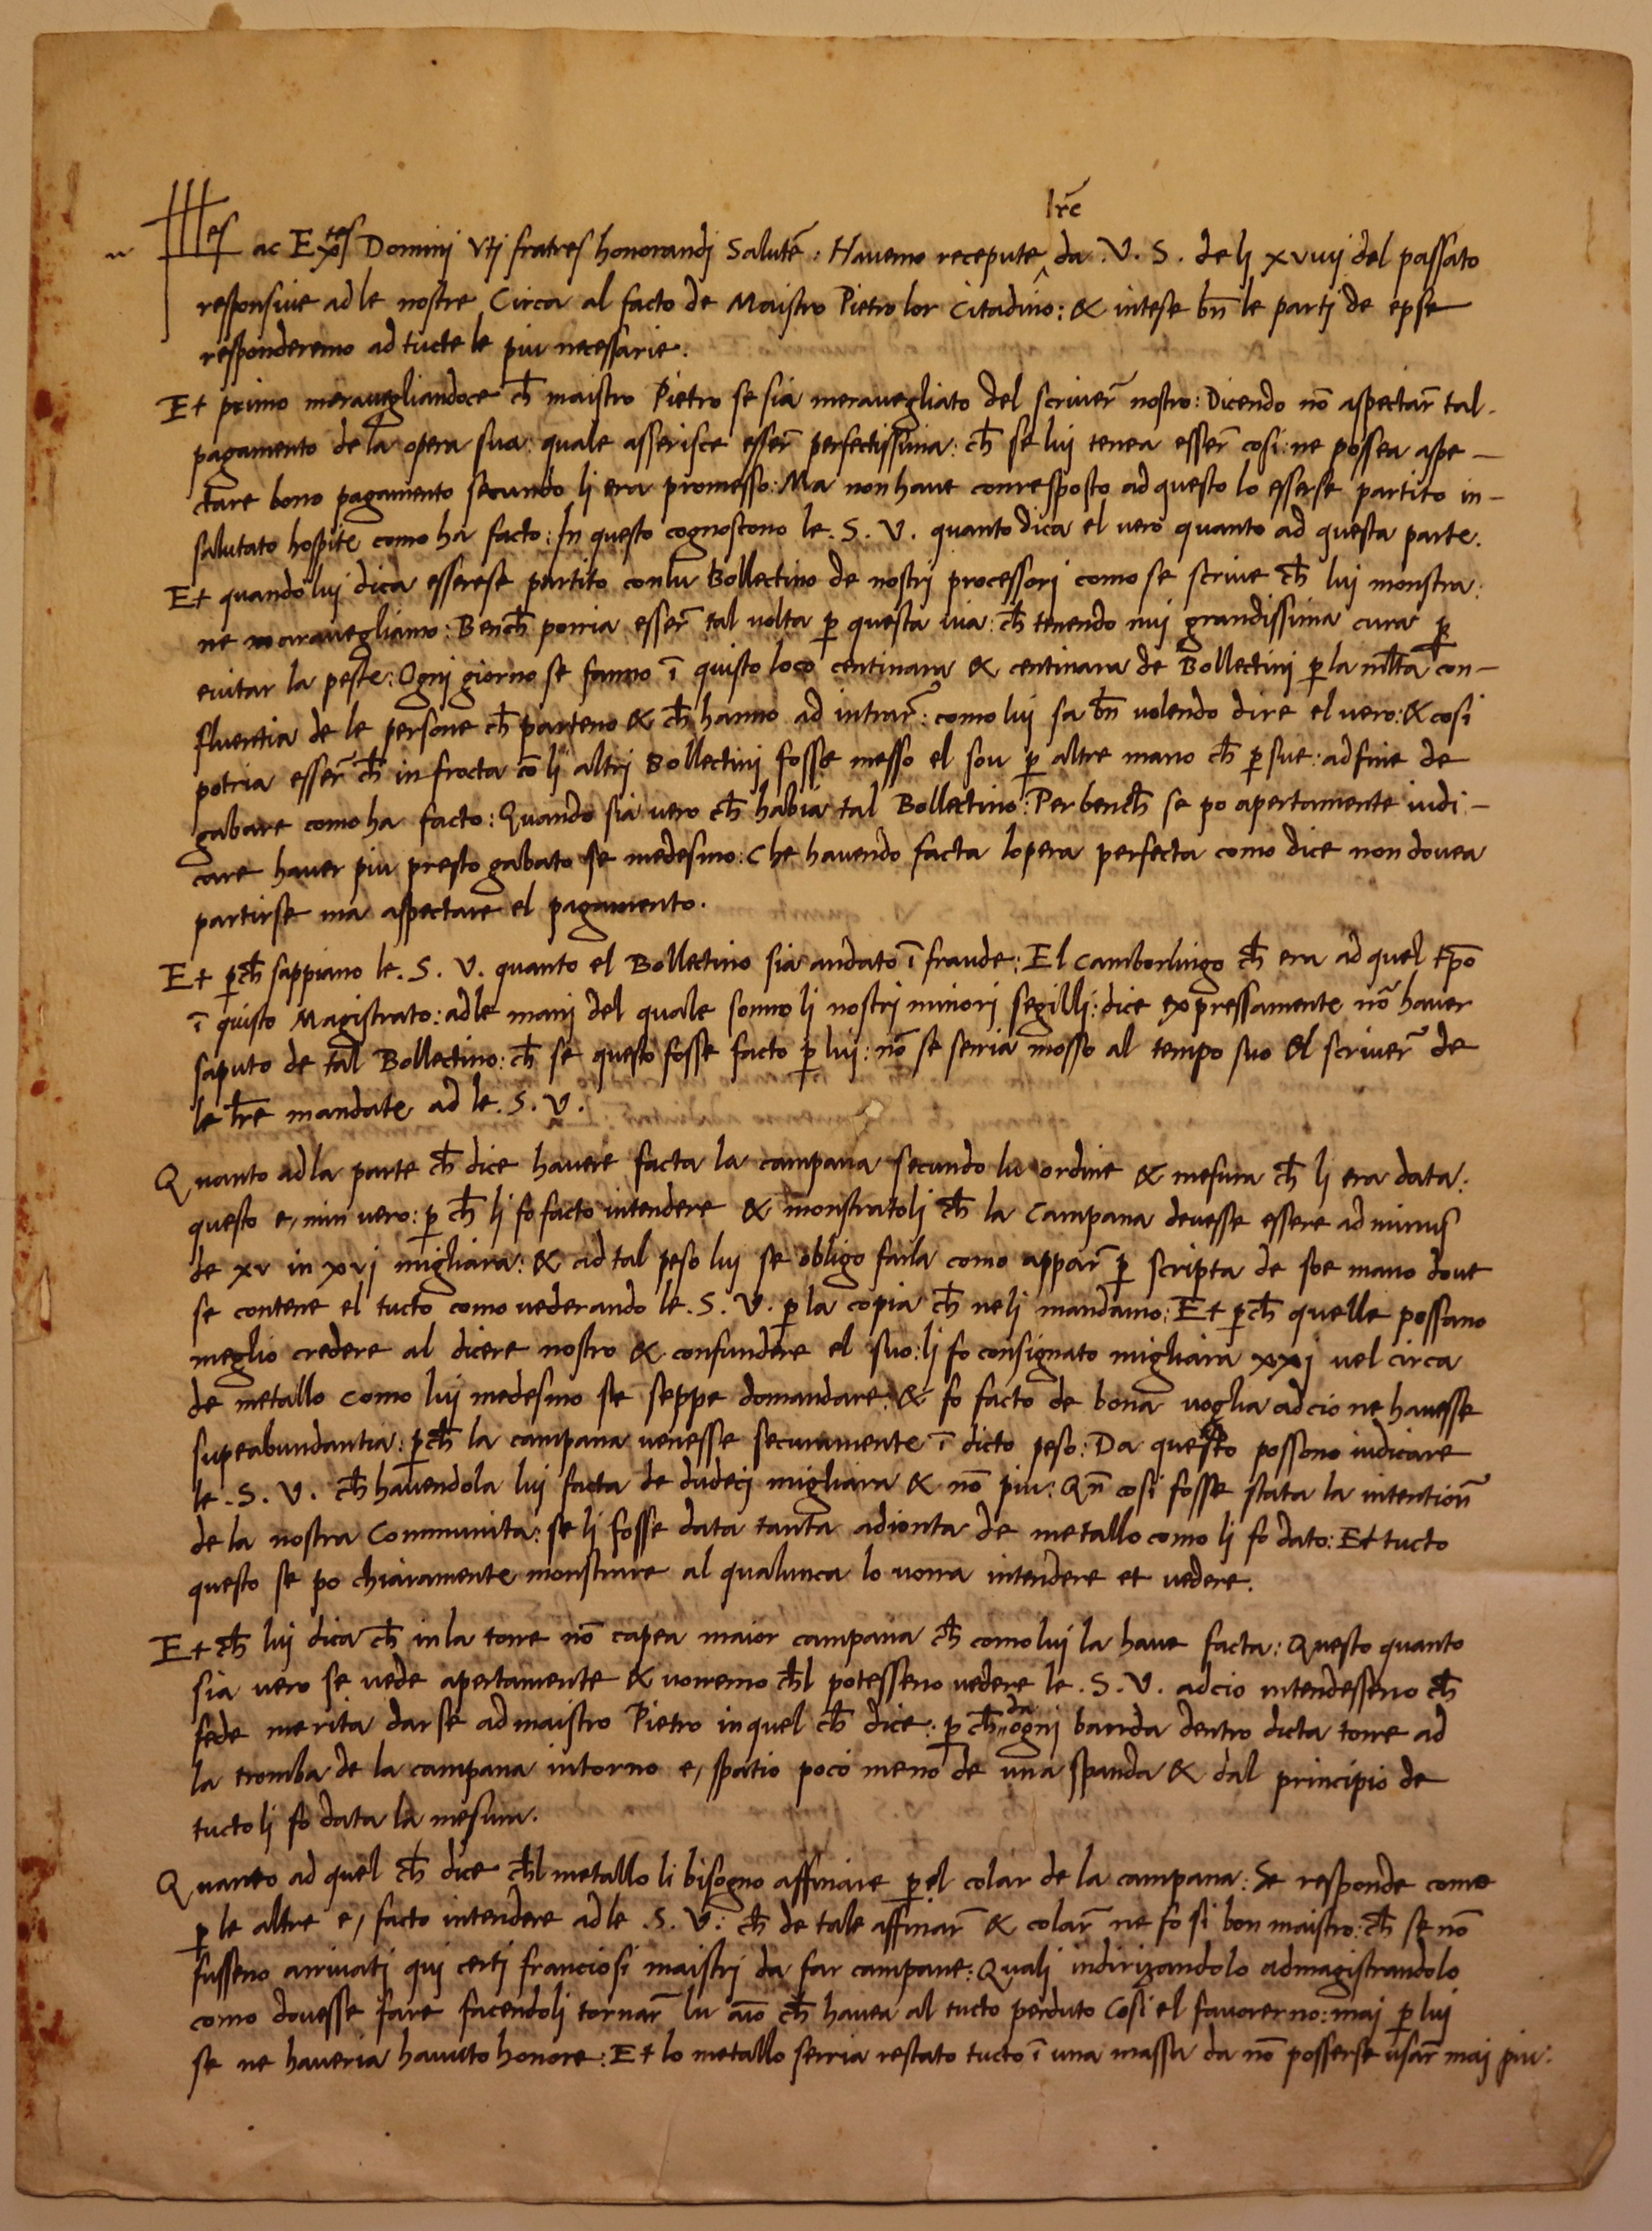 lr̃e
Illes ac Exc̃tes Dominj Vtj fratres honorandj Salutẽ: Hauemo recepute da .V. S. de lj xvıııj del passato
responsiue ad le nostre Circa al facto de Maistro Pietro lor Citadino: & intese bñ le partj de epse
responderemo ad tucte le piu necessarie.
Et primo merauegliandoce ch̃ maistro Pietro se sia merauegliato del scriuer̃ nostro: Dicendo nõ aspectar̃ tal
pagamento de la opera sua: quale asserisce esser̃ perfectissima: ch̃ se luj tenea esser̃ cosi: ne possea aspe-
ctare bono pagamento secundo lj era promesso: Ma non haue corresposto ad questo lo esserse partito in-
salutato hospite como ha facto: In questo cognoscono le .S. V. quanto dica el vero quanto ad questa parte.
Et quando luj dica esserese partito con lu Bollectino de nostrj processorj como se scriue ch̃ luj monstra:
ne marauegliamo: Bench̃ porria esser̃ tal uolta p̱ questa uia: ch̃ tenendo nuj grandissima cura p̱
euitar la peste: Ognj giorno se fanno ĩ quisto loco centinara & centinara de Bollectinj p̱ la ml̃ta con-
fluentia de le persone ch̃ parteno & ch̃ hanno ad intrar̃: como luj sa bñ volendo dire el vero: & cosi
potria esser̃ ch̃ in frocta cõ lj altrj Bollectinj fosse messo el sou p̱ altre mano ch̃ p̱ sue: ad fine de
gabare como ha facto: Quando sia uero ch̃ habia tal Bollectino: Per bench̃ se po apertamente iudi-
care hauer piu presto gabato se medesmo: Che hauendo facta lopera perfecta como dice non douea
partirse ma aspectare el pagamento.
Et p̱ch̃ sappiano le .S. V. quanto el Bollectino sia andato ĩ fraude: El Camborlingo ch̃ era ad quel tp̃o
ĩ quisto Magistrato: ad le manj del quale sonno lj nostrj minori segillj: dice expressamente nõ hauer
saputo de tal Bollectino: ch̃ se questo fosse facto p̱ luj: nõ se seria mosso al tempo suo el scriuer̃ de
le lr̃e mandate ad le .S. V.
Quanto ad la parte ch̃ dice hauere facta la campana secundo lu ordine & mesura ch̃ lj era data:
questo e, min vero: p̱ ch̃ lj fo facto intendere & monstratolj ch̃ la Campana deuesse essere ad minus
de xv in xvj migliara: & ad tal peso luj se obligo farla como appar̃ p̱ scripta de soe mano doue
se contene el tucto como uederando le .S. V. p̱ la copia ch̃ ne lj mandamo: Et p̱ch̃ quelle possano
meglio credere al dicere nostro & confundere el suo: lj fo consignato migliara xxj uel circa
de metallo como luj medesmo se seppe domandare: & fo facto de bona uoglia ad cio ne hauesse
supeabundantia: p̱ch̃ la campana uenesse securamente ĩ dicto peso: Da questo possono iudicare
le .S. V. ch̃ hauendola luj facta de dudecj migliara & nõ piu: Qñ cosi fosse stata la intentioñ
de la nostra Communita: se lj fosse data tanta adionta de metallo como lj fo dato: Et tucto
questo se po chiaramente monstrare al qualunca lo uorra intendere et uedere.
Et ch̃ luj dica ch̃ in la torre nõ capea maior campana ch̃ como luj la haue facta: Questo quanto
sia uero se uede apertamente & uorremo ch̃l potesseno uedere le .S. V. ad cio intendesseno ch̃
fede merita darse ad maistro Pietro in quel ch̃ dice: p̱ ch̃ da ognj banda dentro dicta torre ad
la tromba de la campana intorno e, spatio poco meno de una spanda & dal principio de
tucto lj fo data la mesura.
Quanto ad quel ch̃ dice ch̃l metallo li bisogno affinare p̱ el colar de la campana: Se responde como
p̱ le altre e, facto intendere ad le .S. V: ch̃ de tale affinar̃ & colar̃ ne fo si bon maistro: ch̃ se nõ
fusseno arriuatj quj certj franciosi maistrj da far campane: Qualj indirizandolo admagistrandolo
como douesse fare facendolj tornar̃ lu aĩo ch̃ hauea al tucto perduto Cosi el fauorerno: maj p̱ luj
se ne haueria hauuto honore: Et lo metallo serria restato tucto ĩ una massa da nõ posserse usar̃ maj piu: